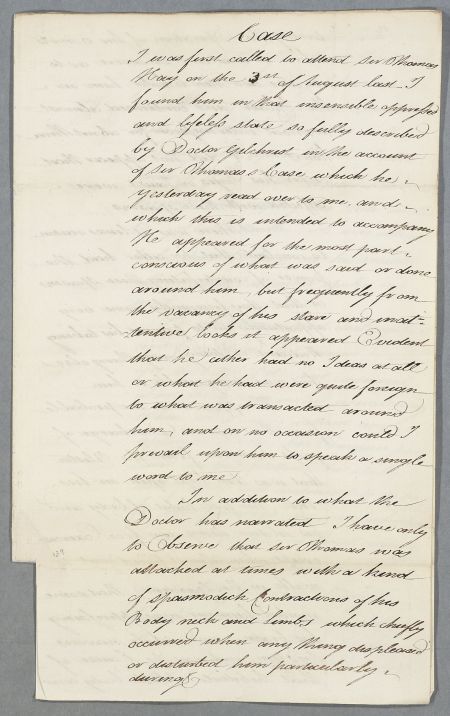 Case
I was first called to attend Sir Thomas
Hay on the 3rd of August last. I
found him in that insensible oppressed
and lifeless state so fully described
by Doctor Gilchrist in the account
of Sir Thomas's Case which he
yesterday read over to me, and
which this is intended to accompany
He appeared for the most part
conscious of what was said or done
around him, but frequently from
the vacancy of his stare and inat=
=tentive looks it appeared Evident
that he either had no Ideas at all
or what he had were quite foreign
to what was transacted around
him, and on no occasion could I
prevail upon him to speak a single
word to me
In addition to what the
Doctor has narrated I have only
to Observe that Sir Thomas was
attacked at times with a kind
of Spasmodick Contractions of his
Body neck and limbs which chiefly
occurred when any thing displeased
or disturbed him particularly
during